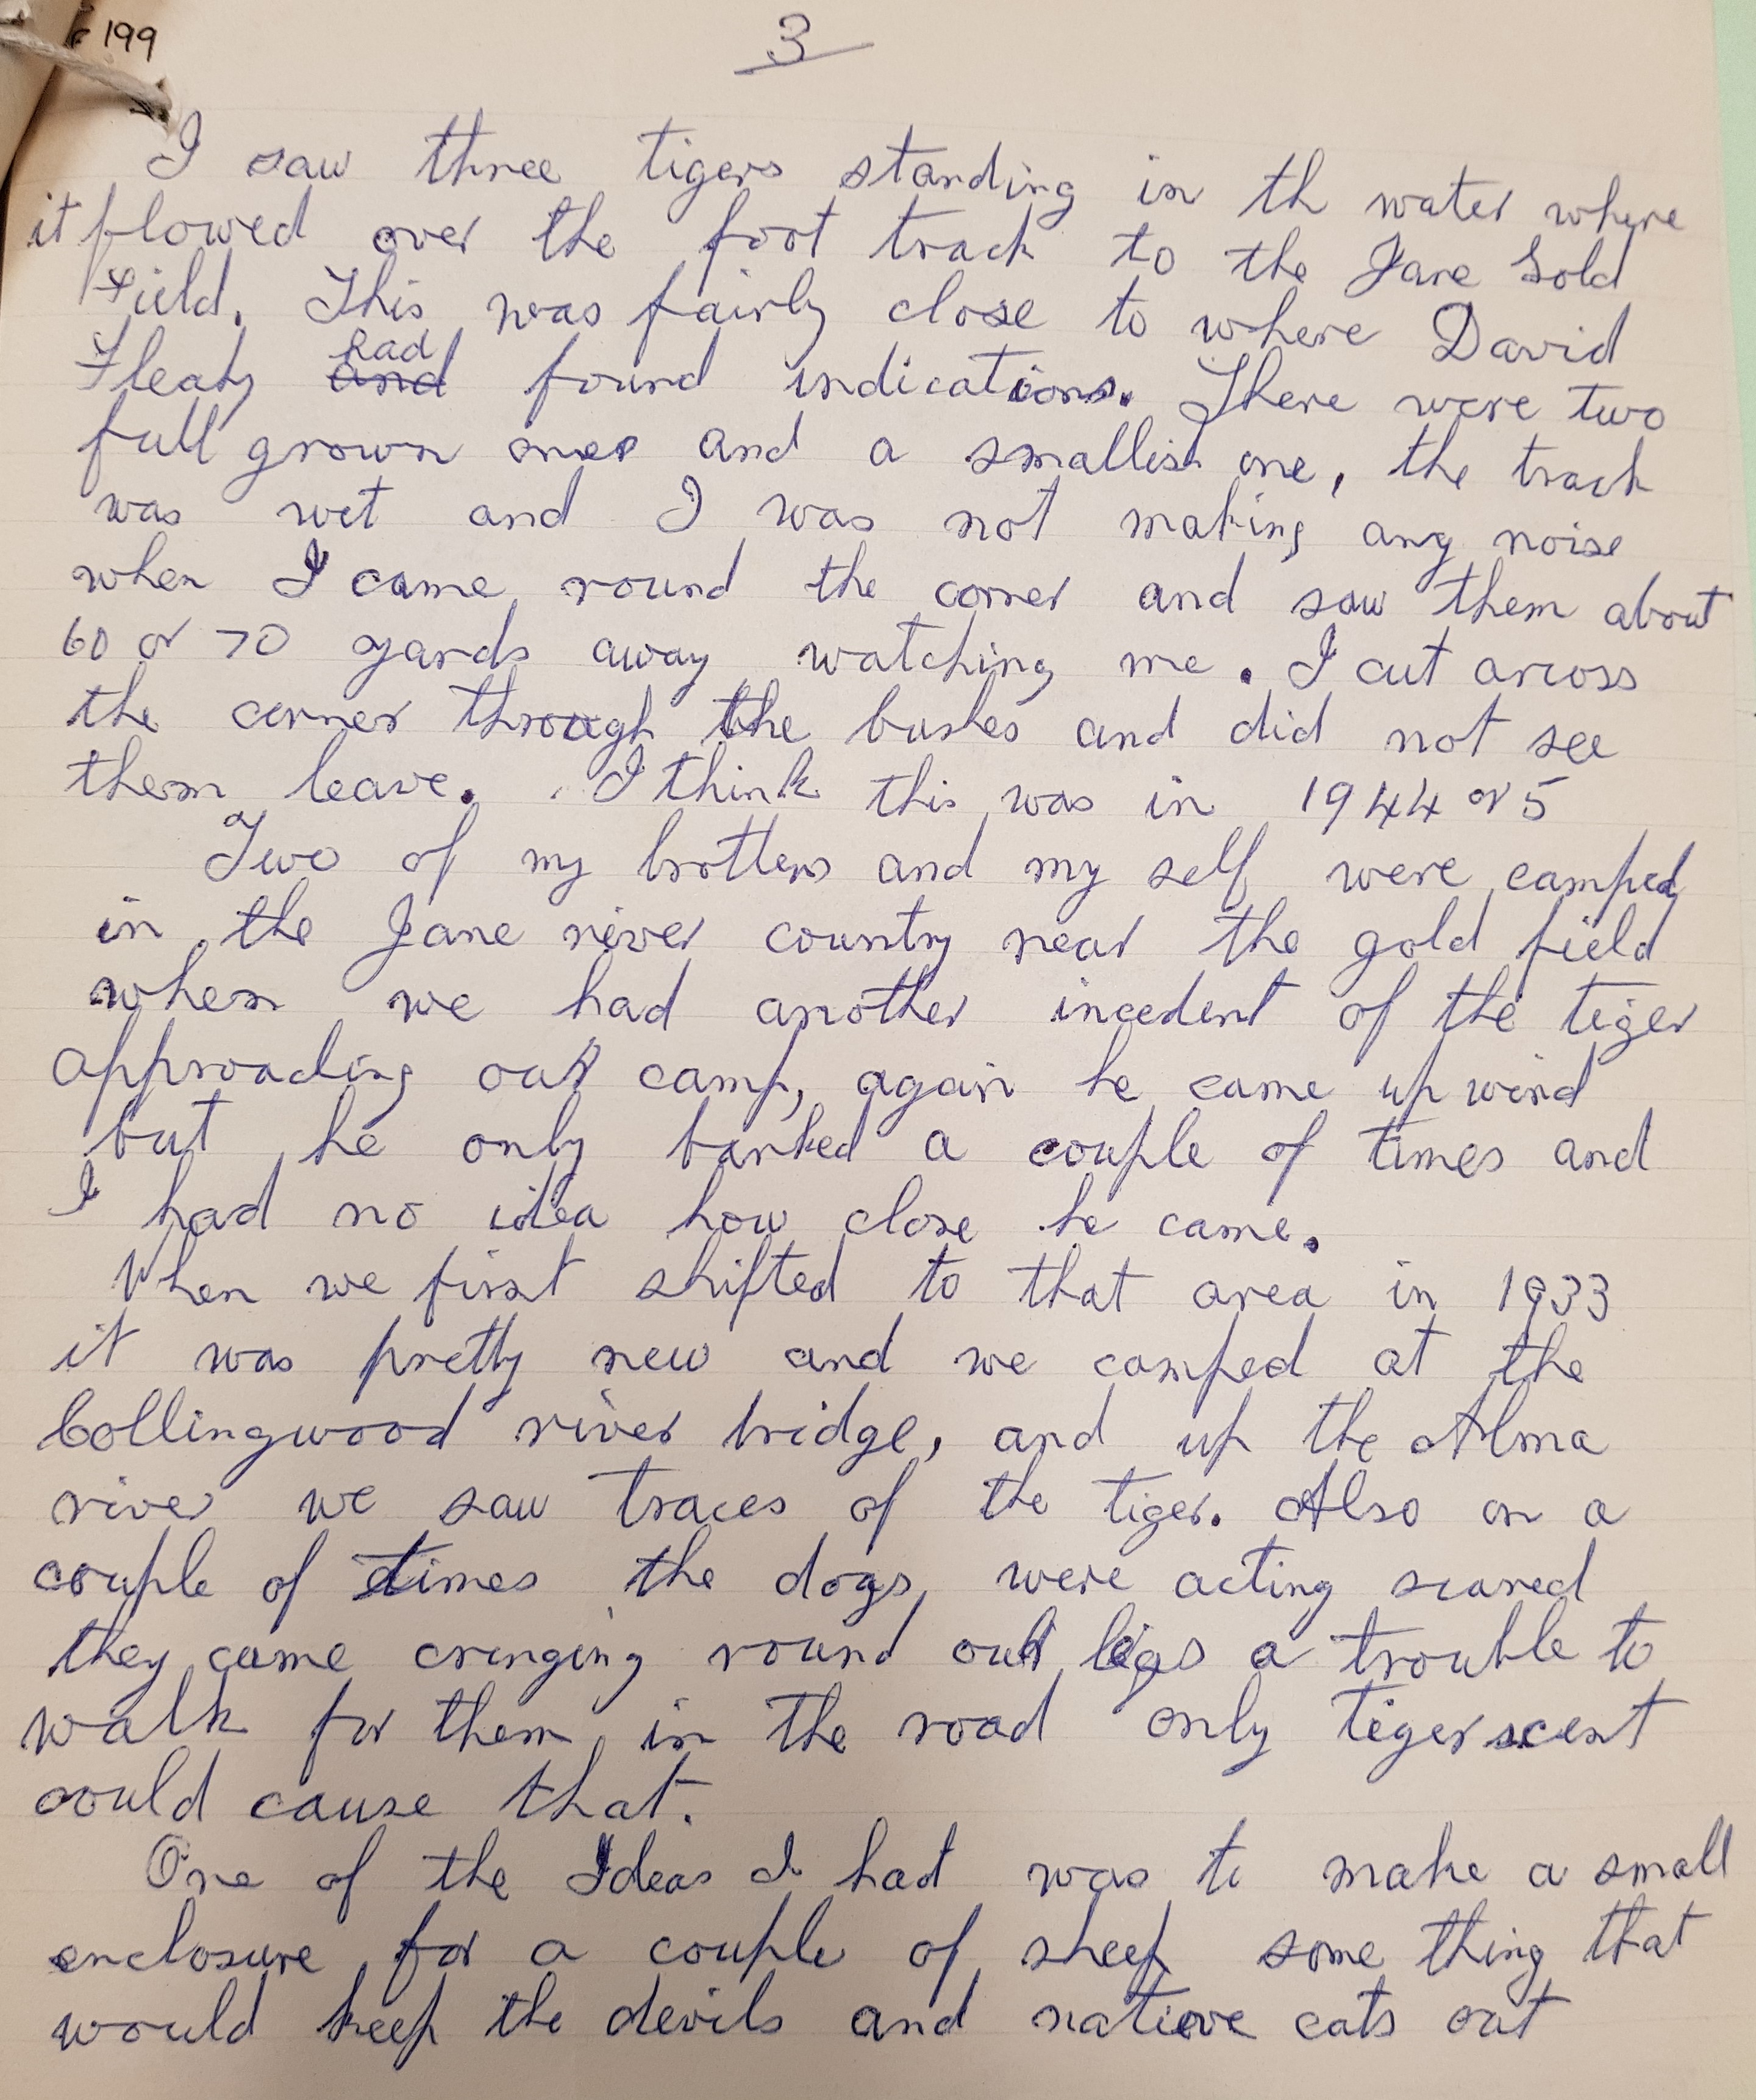 199
3
I saw three tigers standing in th water where
it flowed over the foot track to the Jane Gold
Field. This was fairly close to where David
Fleay had
and found indications. There were two
full grown ones and a smallish one, the track
was wet and I was not making any noise
when I came round the corner and saw them about
60 or 70 yards away watching me. I cut across
the corner through the bushes and did not see
them leave. I think this was in 1944 or 5
Two of my brothers and my self were camped
in the Jane river country near the gold field
when we had another incedent of the tiger
approaching our camp, again he came up wind
but he only barked a couple of times and
I had no idea how close he came.
When we first shifted to that area in 1933
it was pretty new and we camped at the
Collingwood river bridge, and up the Alma
river we saw traces of the tiger. Also on a
couple of times the dogs were acting scared
they came cringing round our legs a trouble to
walk for them in the road only tiger scent
could cause that.
One of the Ideas I had was to make a small
enclosure for a couple of sheep some thing that
would keep the devils and native cats out